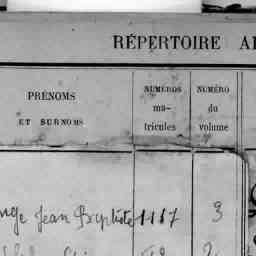 RÉPERTOIRE
PRÉNOMS
ET SURNOMS
NUMÉROS
ma-
tricules
NUMÉRO
du
volume
Jean Baptiste 1117 3